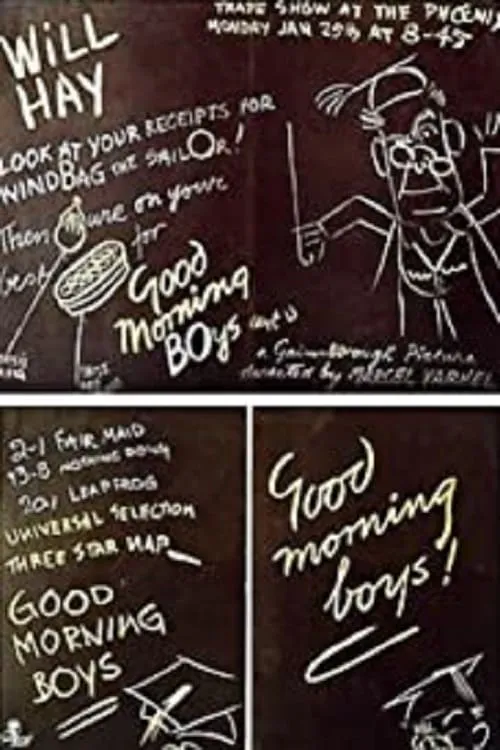 WILL
HAY
TRADE SHOW AT THE PHOENIX
MONDAY JAN 25th AT 8-45
LOOK AT YOUR RECEIPTS FOR
WINDBAG THE SAILOR!
Then on your
best for
Good
Morning
BOYS
a Gainsborough Picture
directed by MARCEL VARNEL
2-1 FAIR MAID
13-8 NOTHING DOWN
20/1 LEAPFROG
UNIVERSAL SELECTION
THREE STAR NAP
GOOD
MORNING
BOYS
Good
morning
boys!